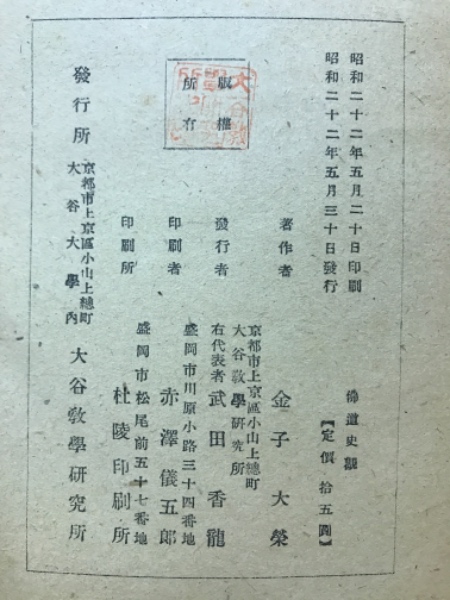 昭和二十二年五月二十日印刷
昭和二十二年五月三十日發行
佛道史觀
【定價 拾五圓】
著作者 金子大榮
京都市上京區小山上總町
大谷敎學硏究所
發行者 右代表者 武田香龍
盛岡市川原小路三十四番地
印刷者 赤澤儀五郎
盛岡市松尾前五十七番地
印刷所 杜陵印刷所
版權
所有
京都市上京區小山上總町
大谷大學內
發行所 大谷敎學硏究所